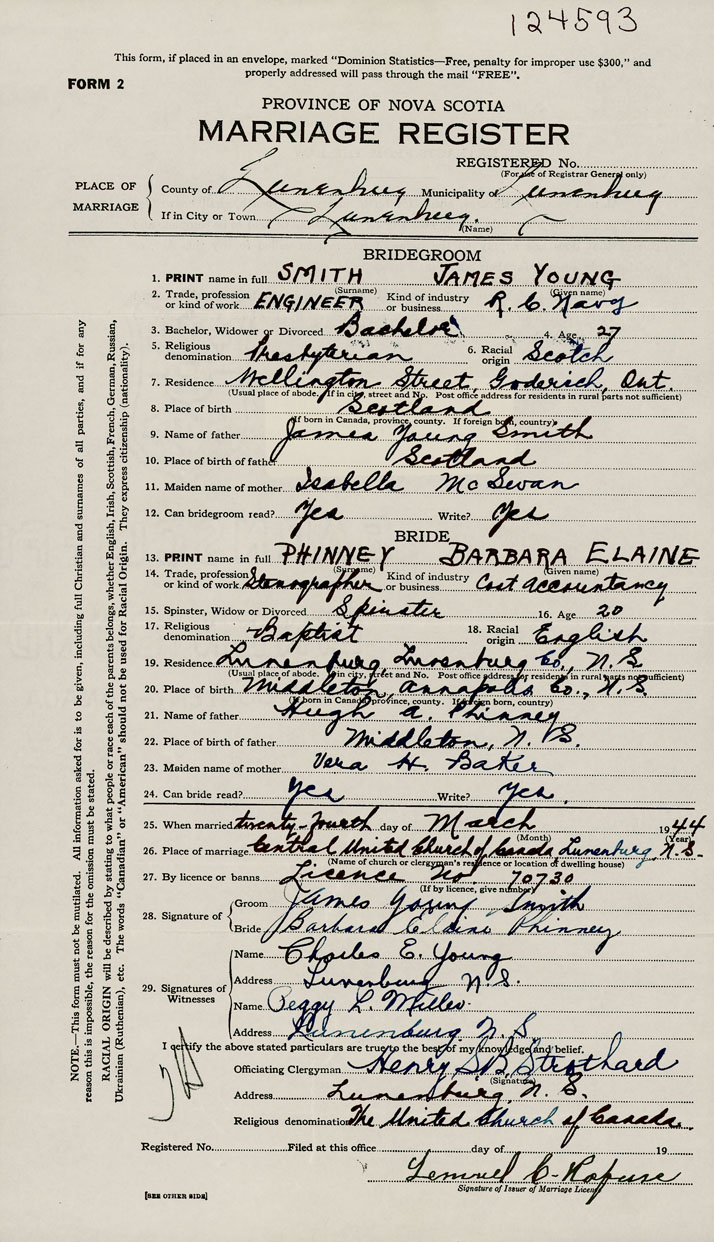 124593
This form, if placed in an envelope, marked "Dominion Statistics—Free, penalty for improper use $300," and
properly addressed will pass through the mail "FREE".
FORM 2
PROVINCE OF NOVA SCOTIA
MARRIAGE REGISTER
REGISTERED No.
(For use of Registrar General only)
PLACE OF MARRIAGE
County of Lunenburg Municipality of Lunenburg
If in City or Town Lunenburg.
(Name)
BRIDEGROOM
1. PRINT name in full SMITH JAMES YOUNG
(Surname) (Given name)
2. Trade, profession or kind of work ENGINEER Kind of industry or business R. C. Navy
3. Bachelor, Widower or Divorced Bachelor 4. Age 27
5. Religious denomination Presbyterian 6. Racial origin Scotch
7. Residence Wellington Street, Goderich, Ont.
(Usual place of abode. If in city, street and No. Post office address for residents in rural parts not sufficient)
8. Place of birth Scotland
(If born in Canada, province, county. If foreign born, country)
9. Name of father James Young Smith
10. Place of birth of father Scotland
11. Maiden name of mother Isabella McSwan
12. Can bridegroom read? Yes Write? Yes
BRIDE
13. PRINT name in full PHINNEY BARBARA ELAINE
(Surname) (Given name)
14. Trade, profession or kind of work Stenographer Kind of industry or business Cost Accountancy
15. Spinster, Widow or Divorced Spinster 16. Age 20
17. Religious denomination Baptist 18. Racial origin English
19. Residence Lunenburg, Lunenburg Co., N.S.
(Usual place of abode. If in city, street and No. Post office address for residents in rural parts not sufficient)
20. Place of birth Middleton, Annapolis Co., N.S.
(If born in Canada, province, county. If foreign born, country)
21. Name of father Hugh A. Phinney
22. Place of birth of father Middleton, N.S.
23. Maiden name of mother Vera H. Baker
24. Can bride read? Yes Write? Yes.
25. When married twenty-fourth day of March 1944
(Month) (Year)
26. Place of marriage Central United Church of Canada, Lunenburg, N.S.
(Name of church or clergyman's residence or location of dwelling house)
27. By licence or banns Licence No. 70730
(If by licence, give number)
28. Signature of
Groom James Young Smith
Bride Barbara Elaine Phinney
29. Signatures of Witnesses
Name Charles E. Young
Address Lunenburg N.S.
Name Peggy L. Miller
Address Lunenburg N.S.
I certify the above stated particulars are true to the best of my knowledge and belief.
Officiating Clergyman Henry S.B. Strothard
(Signature)
Address Lunenburg, N.S.
Religious denomination The United Church of Canada.
Registered No. Filed at this office day of 19
Lemuel C. Rafuse
Signature of Issuer of Marriage License
[SEE OTHER SIDE]
NOTE.—This form must not be mutilated. All information asked for is to be given, including full Christian and surnames of all parties, and if for any
reason this is impossible, the reason for the omission must be stated.
RACIAL ORIGIN will be described by stating to what people or race each of the parents belongs, whether English, Irish, Scottish, French, German, Russian,
Ukrainian (Ruthenian), etc. The words "Canadian" or "American" should not be used for Racial Origin. They express citizenship (nationality).